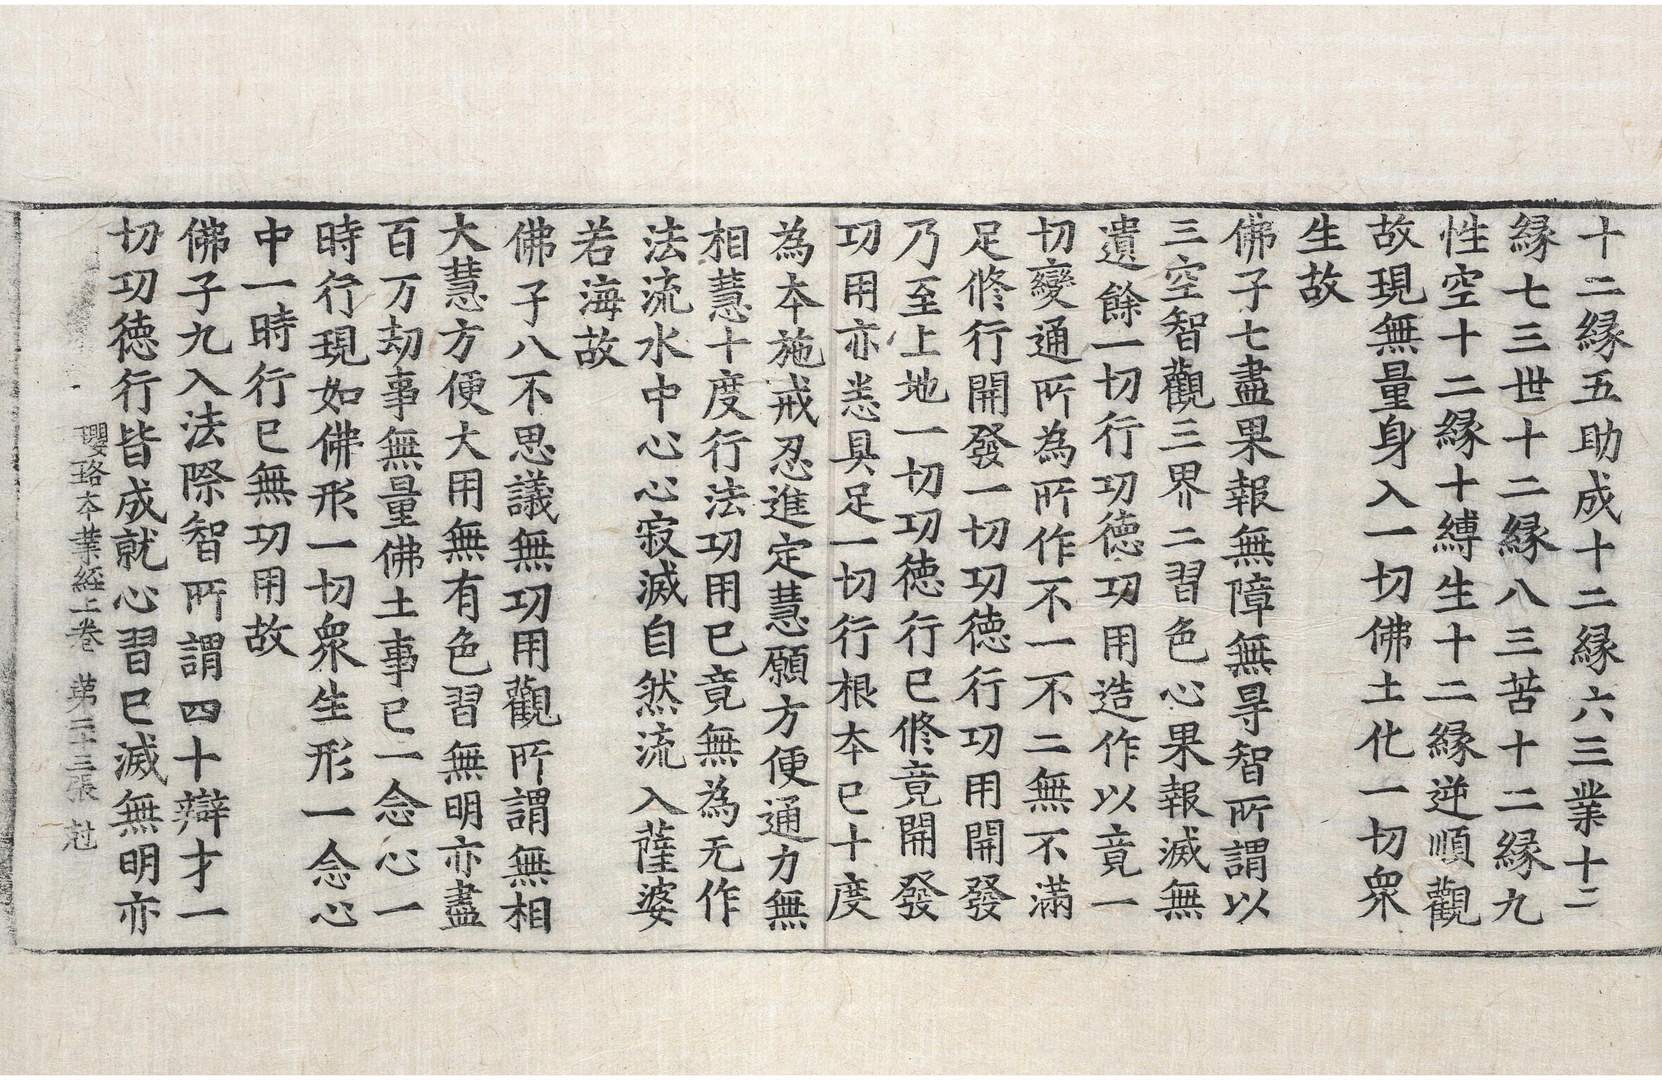 十二縁五助成十二縁六三業十二
縁七三世十二縁八三苦十二縁九
性空十二縁十縛生十二縁逆順觀
故現無量身入一切佛土化一切衆
生故
佛子七盡果報無障無㝵智所謂以
三空智觀三界二習色心果報滅無
遺餘一切行功德功用造作以竟一
切變通所為所作不一不二無不滿
足修行開發一切功德行功用開發
乃至上地一切功德行已修竟開發
功用亦悉具足一切行根本已十度
為本施戒忍進定慧願方便通力無
相慧十度行法功用已竟無為无作
法流水中心心寂滅自然流入薩婆
若海故
佛子八不思議無功用觀所謂無相
大慧方便大用無有色習無明亦盡
百万劫事無量佛土事已一念心一
時行現如佛形一切衆生形一念心
中一時行已無功用故
佛子九入法際智所謂四十辯才一
切功德行皆成就心習已滅無明亦
瓔珞本業經上卷 第二十三張 尅